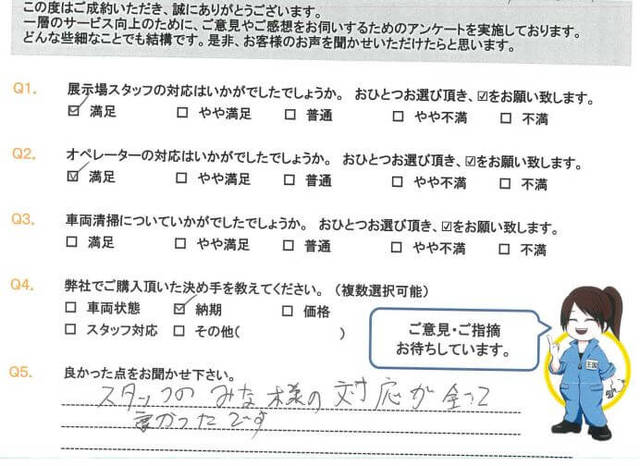 この度はご成約いただき、誠にありがとうございます。
一層のサービス向上のために、ご意見やご感想をお伺いするためのアンケートを実施しております。
どんな些細なことでも結構です。是非、お客様のお声を聞かせいただけたらと思います。
Q1. 展示場スタッフの対応はいかがでしたでしょうか。 おひとつお選び頂き、☑をお願い致します。
☑ 満足 □ やや満足 □ 普通 □ やや不満 □ 不満
Q2. オペレーターの対応はいかがでしたでしょうか。 おひとつお選び頂き、☑をお願い致します。
☑ 満足 □ やや満足 □ 普通 □ やや不満 □ 不満
Q3. 車両清掃についていかがでしたでしょうか。 おひとつお選び頂き、☑をお願い致します。
□ 満足 □ やや満足 □ 普通 □ やや不満 □ 不満
Q4. 弊社でご購入頂いた決め手を教えてください。（複数選択可能）
□ 車両状態 ☑ 納期 □ 価格
□ スタッフ対応 □ その他( )
ご意見・ご指摘
お待ちしています。
王国
Q5. 良かった点をお聞かせ下さい。
スタッフのみな様の対応が
かったです